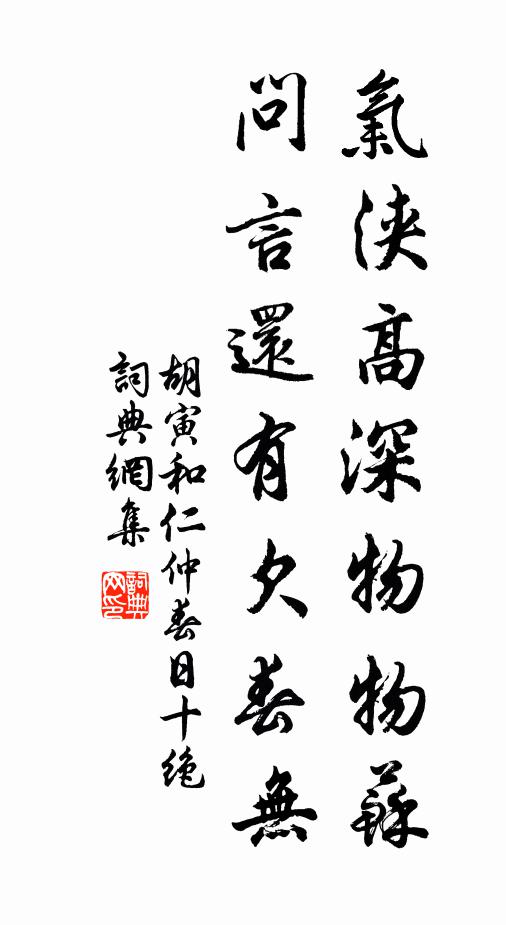 氣浹高深物物蘇
問言還有欠春無
胡寅和仁仲春日十絕
詞典網集
詞典網印